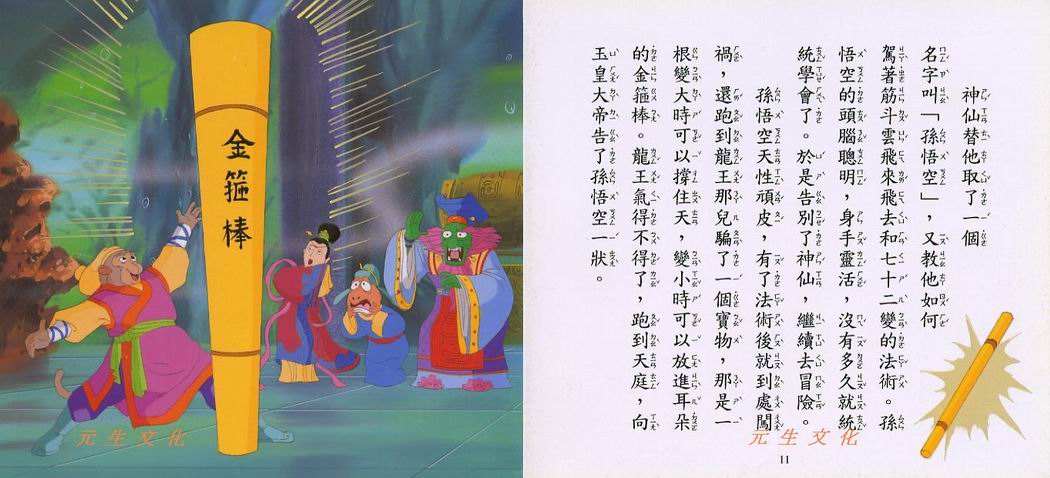 金箍棒
元生文化
神仙替他取了一個
名字叫「孫悟空」，又教他如何
駕著筋斗雲飛來飛去和七十二變的法術。孫
悟空的頭腦聰明，身手靈活，沒有多久就統
統學會了。於是告別了神仙，繼續去冒險。
孫悟空天性頑皮，有了法術後就到處闖
禍，還跑到龍王那兒騙了一個寶物，那是一
根變大時可以撐住天，變小時可以放進耳朵
的金箍棒。龍王氣得不得了，跑到天庭，向
玉皇大帝告了孫悟空一狀。
元生文化
11